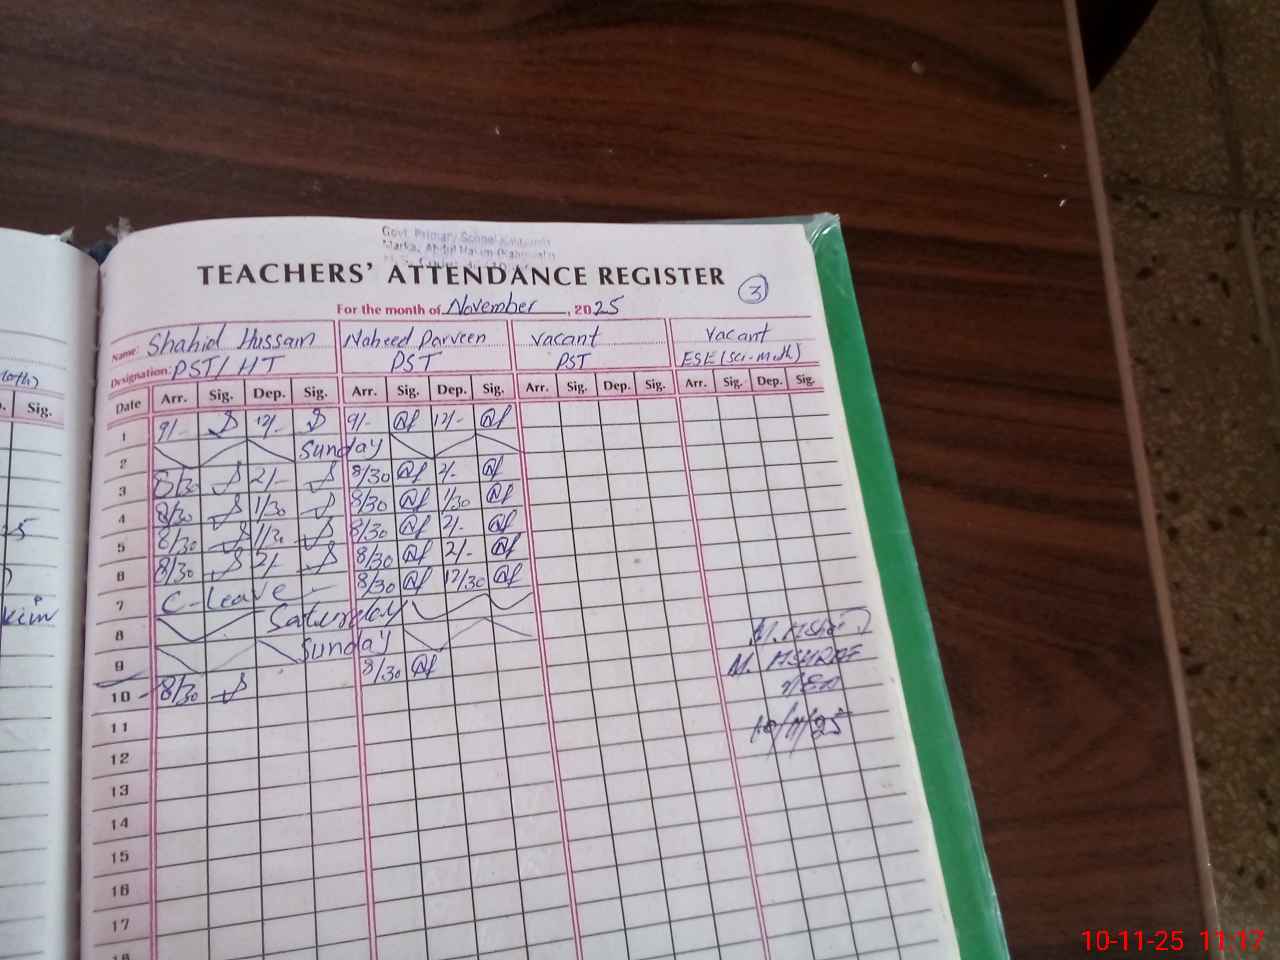 Govt. Primary School
Markaz Abdul Hakim
TEACHERS' ATTENDANCE REGISTER
3
For the month of November, 2025
Name: Shahid Hussain Naheed Parveen vacant vacant
Designation: PST/HT PST PST ESE (Sci-Math)
Date Arr. Sig. Dep. Sig. Arr. Sig. Dep. Sig. Arr. Sig. Dep. Sig. Arr. Sig. Dep. Sig.
Sig.
1 9/- 12/- 9/- 12/-
2 Sunday
3 8/30 2/- 8/30 2/-
4 8/30 1/30 8/30 1/30
5 8/30 1/30 8/30 2/-
6 8/30 2/- 8/30 2/-
7 C-Leave 8/30 12/30
8 Saturday
9 Sunday
10 8/30 8/30
M. ASHRAF
10/11/25
11
12
13
14
15
16
17
18
10-11-25 11:17